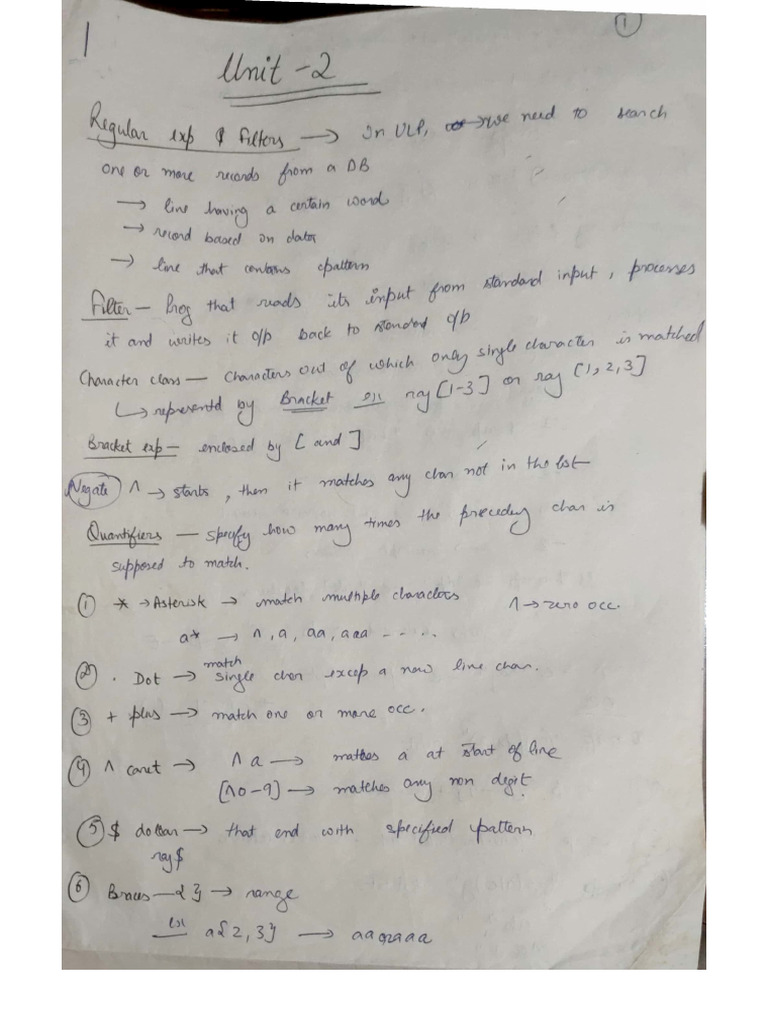 1
①
Unit - 2
Regular exp & Filters → In ULP, we need to search
one or more records from a DB
→ line having a certain word
→ record based on data
→ line that contains pattern
Filter - Prog that reads its input from standard input, processes
it and writes it o/p back to standard o/p
Character class - Characters out of which only single character is matched
↳ represented by Bracket ray [1-3] or ray [1,2,3]
Bracket exp - enclosed by [ and ]
Negate ^ → starts, then it matches any char not in the list
Quantifiers - specify how many times the preceding char is
supposed to match.
① * → Asterisk → match multiple characters ^ → zero occ.
a* → ^, a, aa, aaa - - - - .
② . Dot → match single char excep a new line char.
③ + plus → match one or more occ.
④ ^ caret → ^a → matches a at start of line
[^0-9] → matches any non degit.
⑤ $ dollar → that end with specified pattern
ray$
⑥ Braces - { } → range
a{2,3} → aa or aaa